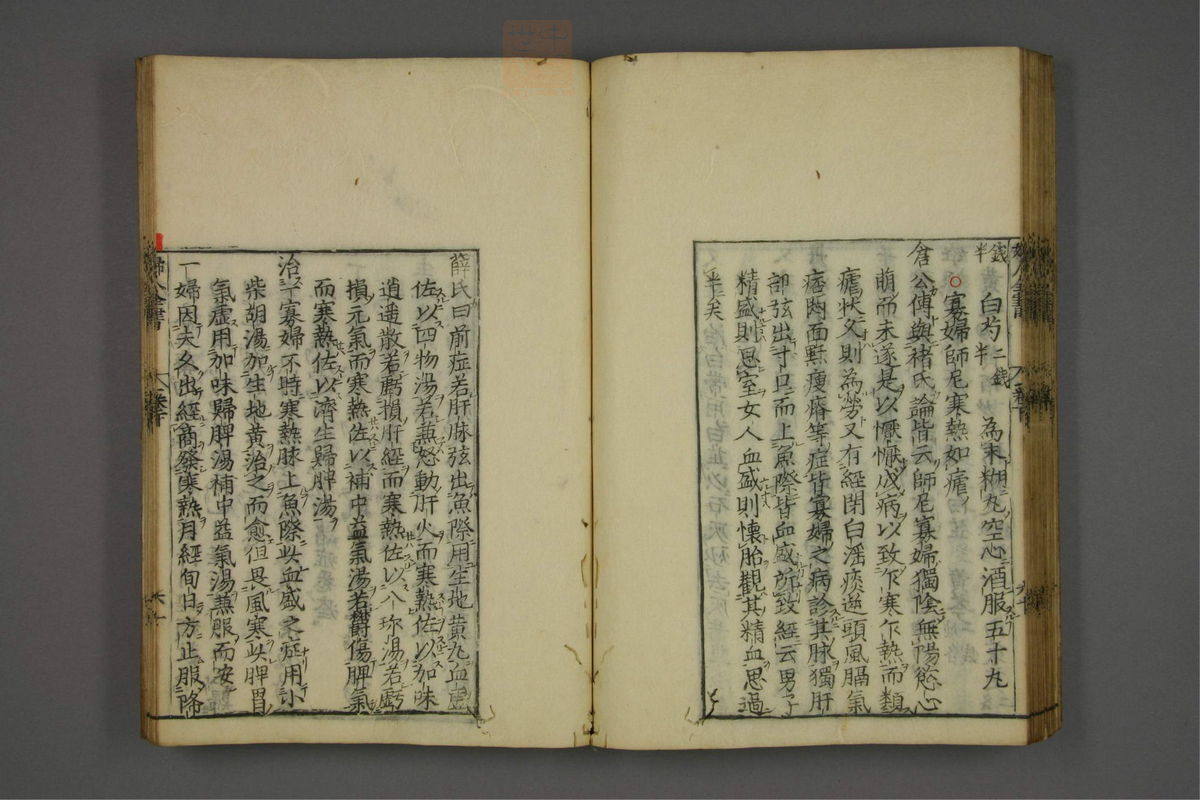 錢半 白芍二錢半 為末糊丸空心酒服五十丸
○寡婦師尼寒熱如瘧
倉公傳與褚氏論皆云師尼寡婦獨陰無陽慾心
萌而未遂是以懨懨成病以致乍寒乍熱而類
瘧状久則為勞又有經閉白淫痰逆頭風膈氣
痞悶面䵟瘦瘠等症皆寡婦之病診其脉獨肝
部弦出寸口而上魚際皆血盛所致經云男子
精盛則思室女人血盛則懷胎觀其精血思過
半矣
薛氏曰前症若肝脉弦出魚際用生地黄丸血虛
佐以四物湯若兼怒動肝火而寒熱佐以加味
逍遥散若虧損肝經而寒熱佐以八珍湯若虧
損元氣而寒熱佐以補中益氣湯若欝傷脾氣
而寒熱佐以濟生歸脾湯
治一寡婦不時寒熱脉上魚際此血盛之症用小
柴胡湯加生地黄治之而愈但畏風寒此脾胃
氣虛用加味歸脾湯補中益氣湯兼服而安
一婦因夫久出經商發寒熱月經旬日方止服降